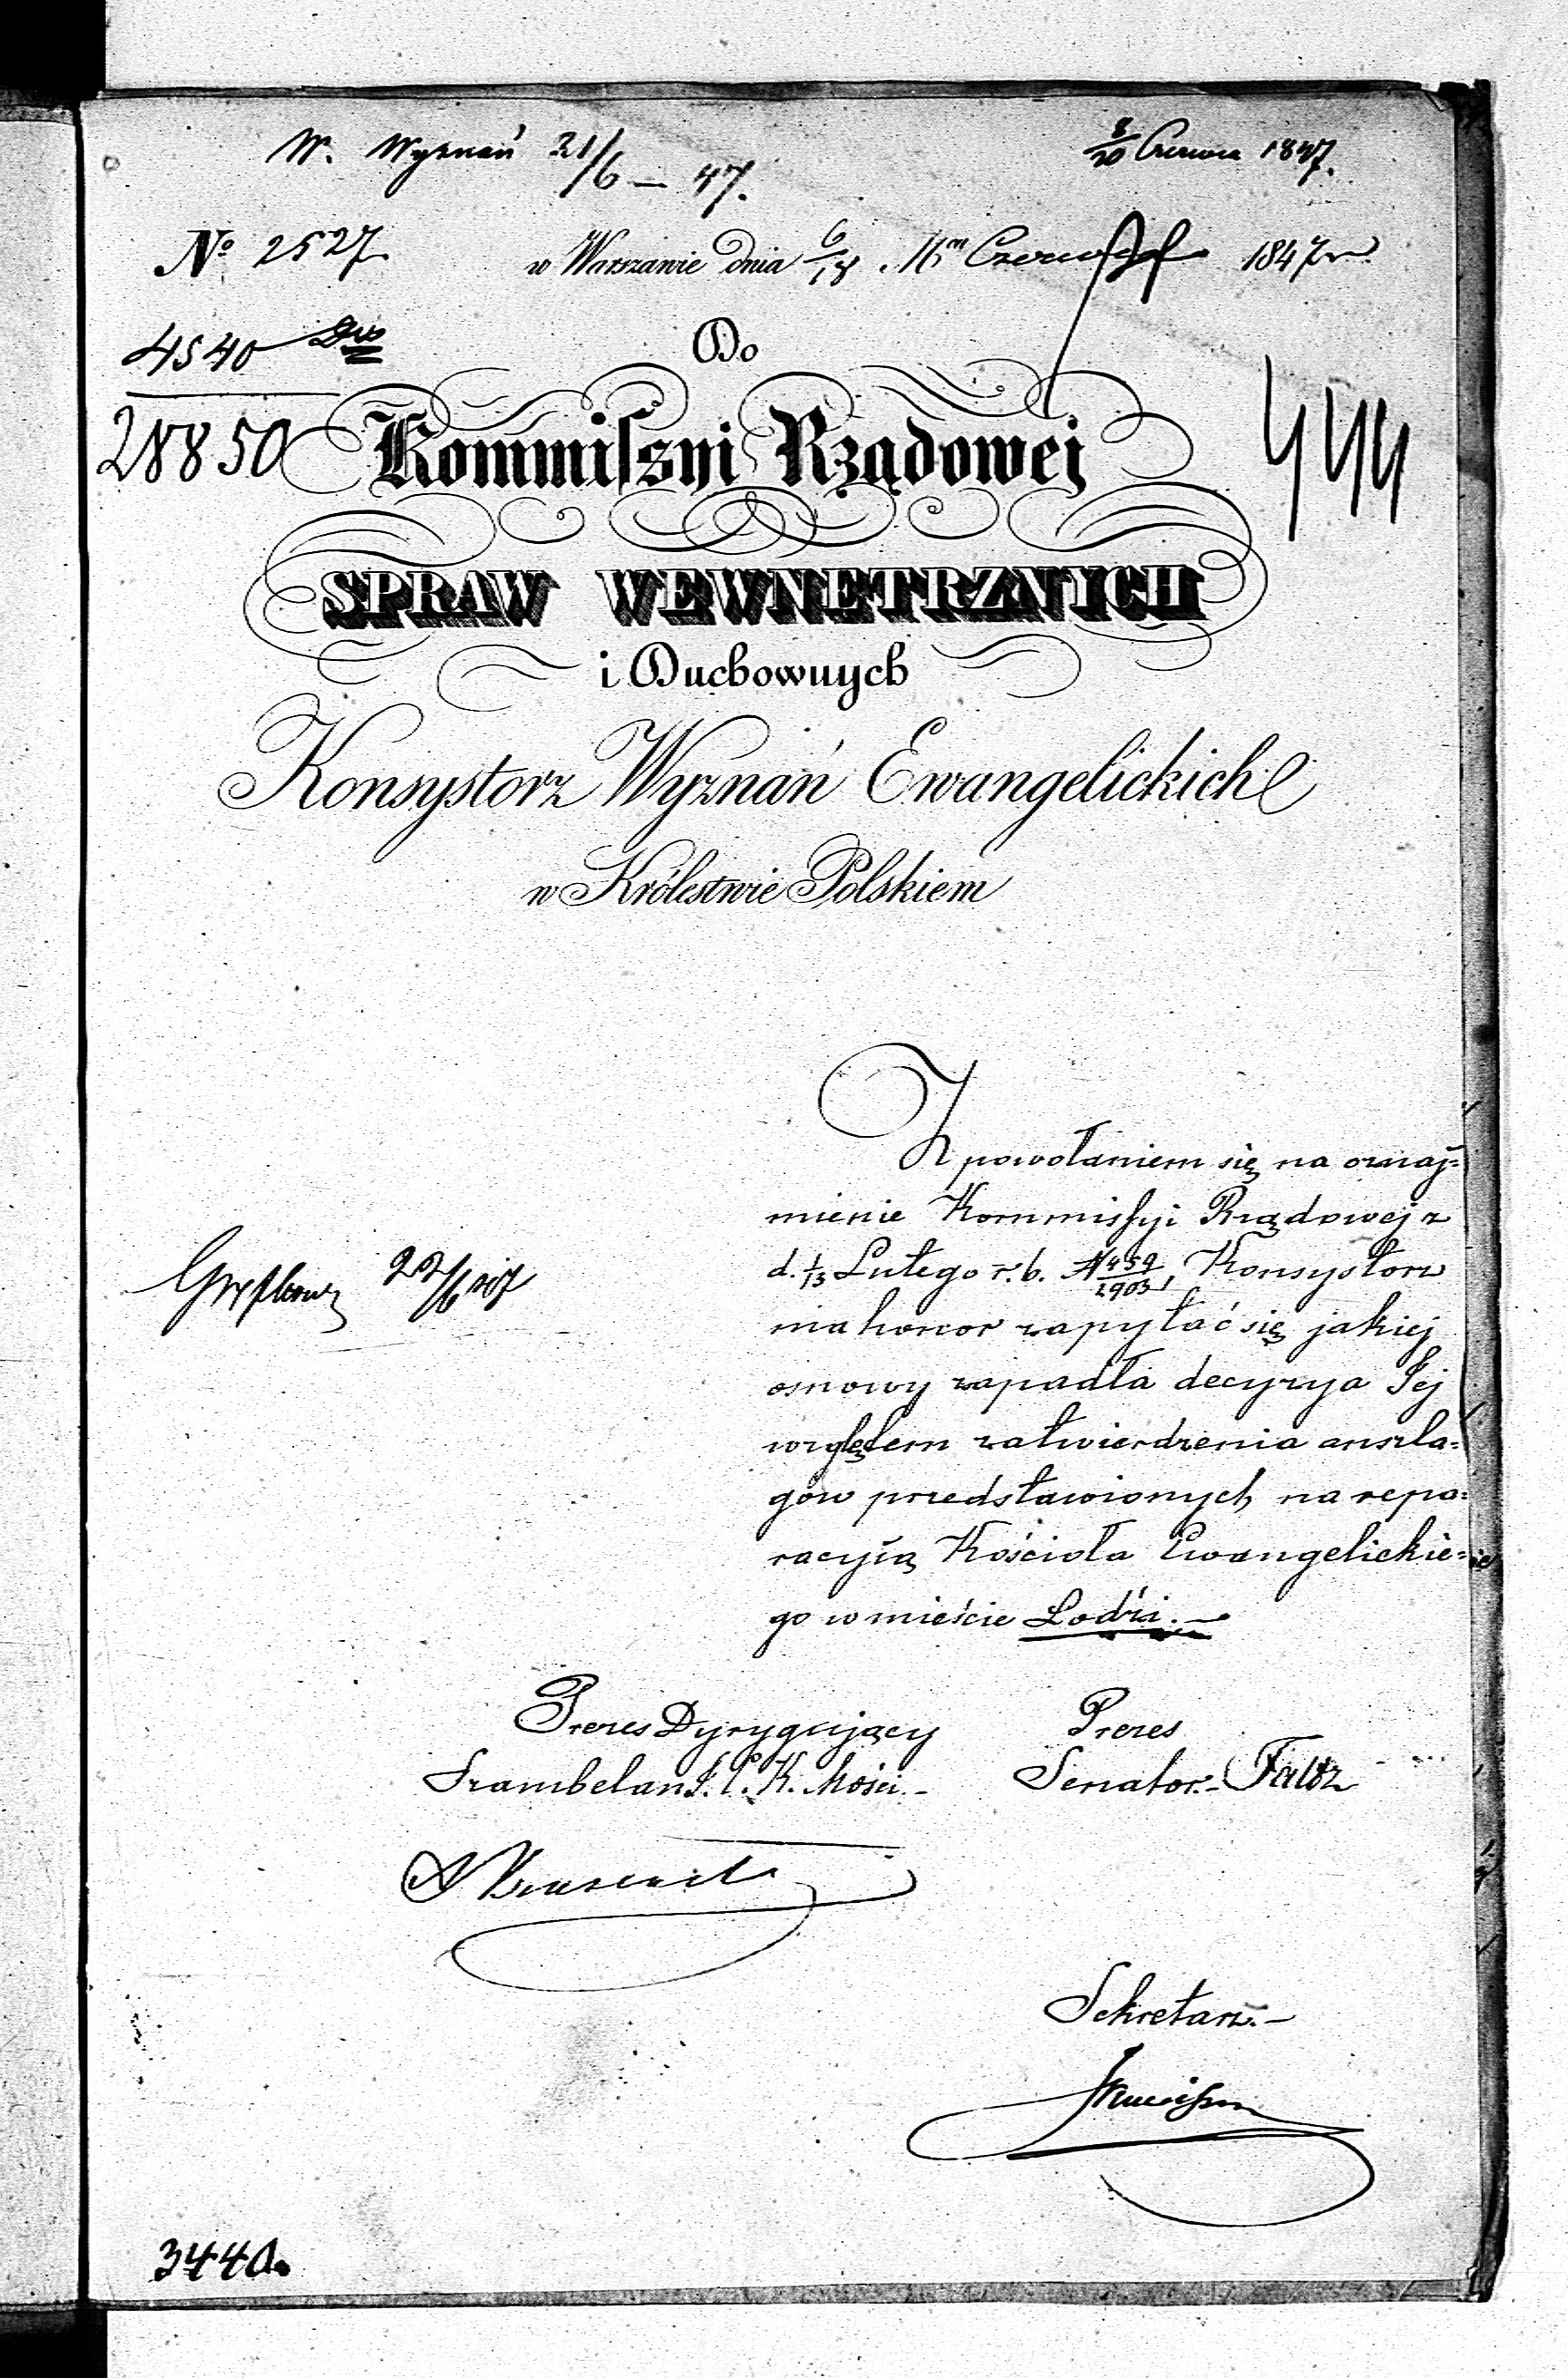 W. Wyznań 21/6 — 47.
8/20 Czerwca 1847.
No 2527
w Warszawie dnia 6/18 Czerwca 1847 r.
4540
28850
Do
Kommissyi Rządowej
444
SPRAW WEWNĘTRZNYCH
i Duchownych
Konsystorz Wyznań Ewangelickich
w Królestwie Polskiem
Z powołaniem się na oznaj=
mienie Kommissyi Rządowej z
d. 1/13 Lutego r. b. N 459/2903, Konsystorz
ma honor zapytać się jakiej
osnowy zapadła decyzya Jej
względem zatwierdzenia anszla=
gów przedstawionych na repa=
racyią Kościoła Ewangelickie=
go w mieście Lodzi. —
22/6
Prezes Dyrygujący
Prezes
Szambelan J. C. K. Mości. —
Senator. — Faltz
Sekretarz. —
3440.